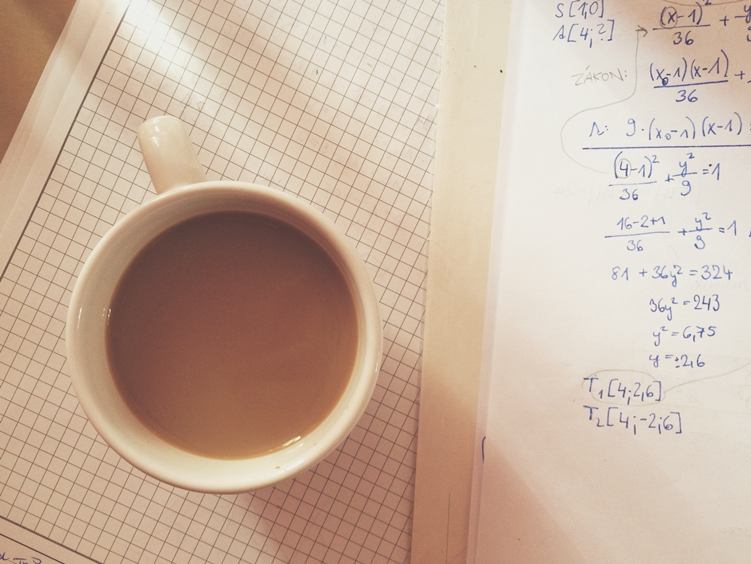 S[1,0]
A[4;?]
(x-1)²/36 + y
ZÁKON:
(x₀-1)(x-1)/36 +
A: 9·(x₀-1)(x-1)
(4-1)²/36 + y²/9 = 1
16-2+1/36 + y²/9 = 1
81 + 36y² = 324
36y² = 243
y² = 6,75
y = ±2,6
T₁[4;2,6]
T₂[4;-2;6]